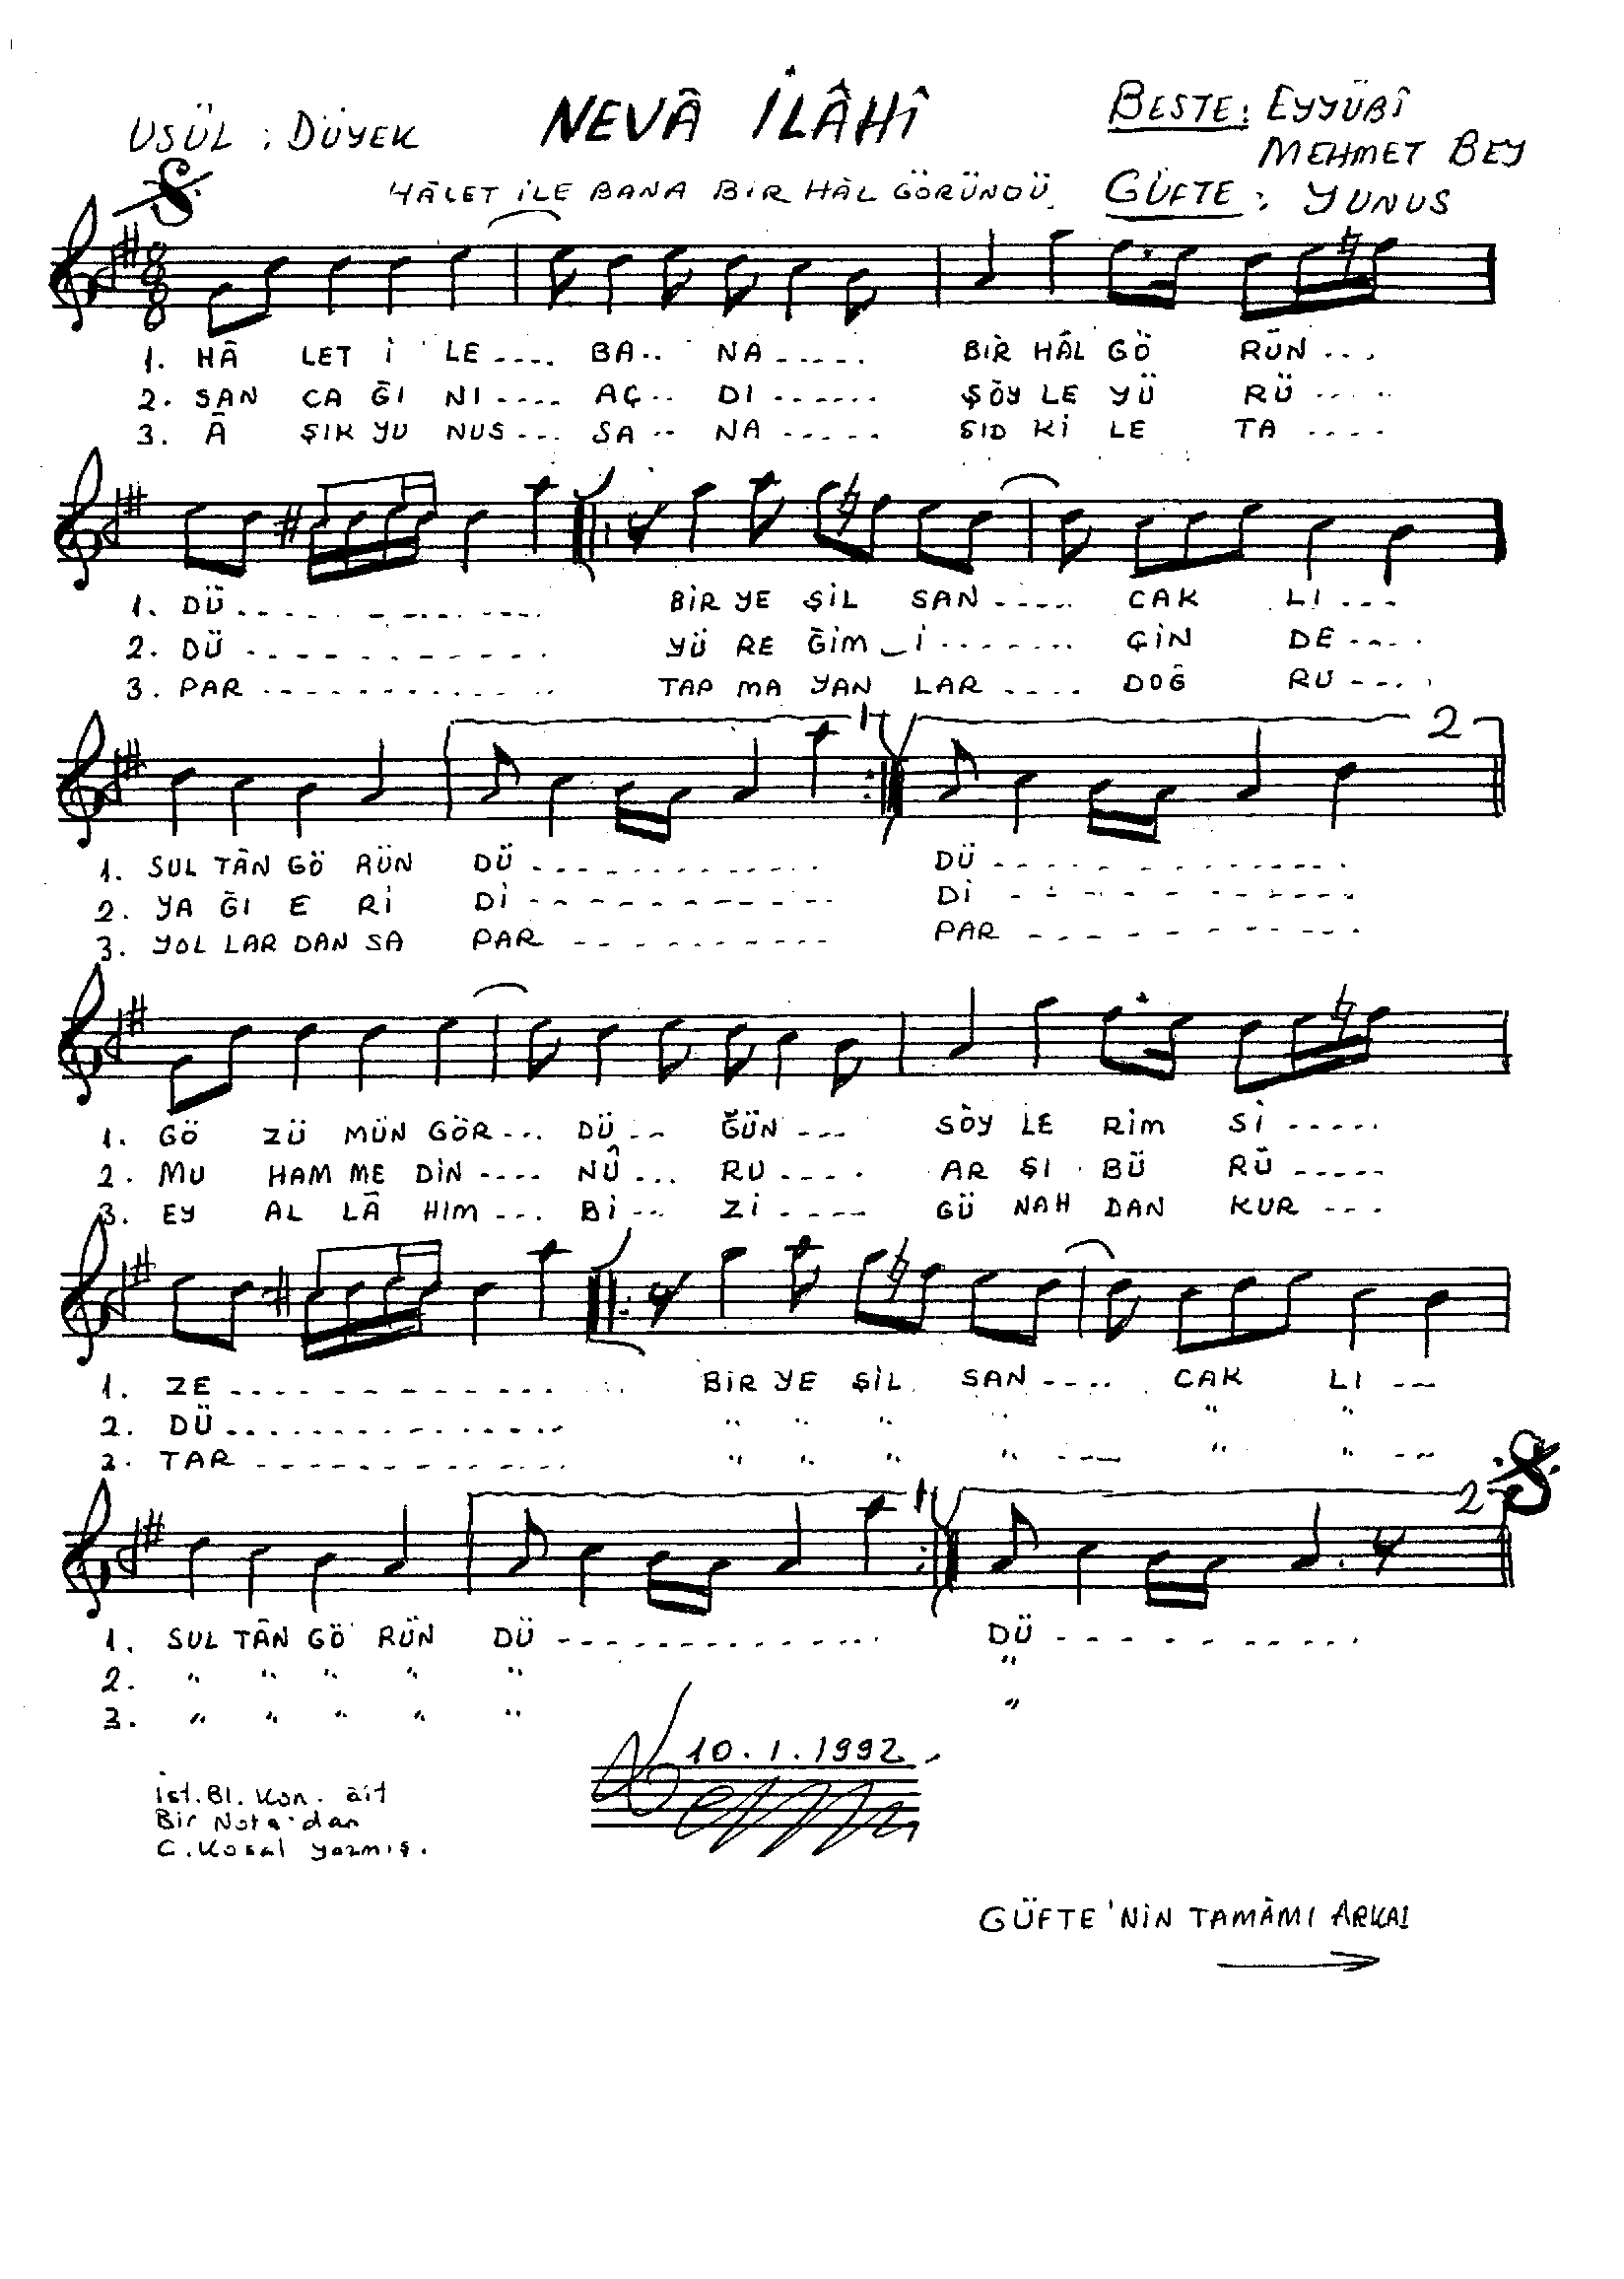 USÜL : DÜYEK NEVÂ İLÂHÎ BESTE: EYYÜBÎ
MEHMET BEY
HÂLET İLE BANA BİR HÂL GÖRÜNDÜ. GÜFTE: YUNUS
8
8
1. HÂ LET İ LE .... BA.. NA ..... BİR HÂL GÖ RÜN ...
2. SAN CA ĞI NI .... AÇ.. DI ...... ŞÖY LE YÜ RÜ ....
3. Â ŞIK YU NUS ... SA .. NA ..... SID Kİ LE TA ....
1. DÜ ............ BİR YE ŞİL SAN ..... CAK LI ...
2. DÜ ............ YÜ RE ĞİM İ ....... ÇİN DE ....
3. PAR ............ TAP MA YAN LAR .... DOĞ RU ....
1 2
1. SUL TÂN GÖ RÜN DÜ ............ DÜ ..............
2. YA ĞI E Rİ Dİ ............ Dİ ............
3. YOL LAR DAN SA PAR ........... PAR ............
1. GÖ ZÜ MÜN GÖR ... DÜ .. ĞÜN ... SÖY LE RİM Sİ .....
2. MU HAM ME DİN .... NÛ ... RU .... AR ŞI BÜ RÜ .....
3. EY AL LÂ HIM ... Bİ ... Zİ .... GÜ NAH DAN KUR ...
1. ZE ............ BİR YE ŞİL SAN .... CAK LI ..
2. DÜ ............. " " " " " "
3. TAR ............ " " " " .... " " ...
1 2
1. SUL TÂN GÖ RÜN DÜ ............. DÜ ...........
2. " " " " " "
3. " " " " " "
10.1.1992
İst. Bl. Kon. âit
Bir Nota'dan
C. Kosal yazmış.
GÜFTE'NİN TAMÂMI ARKAI